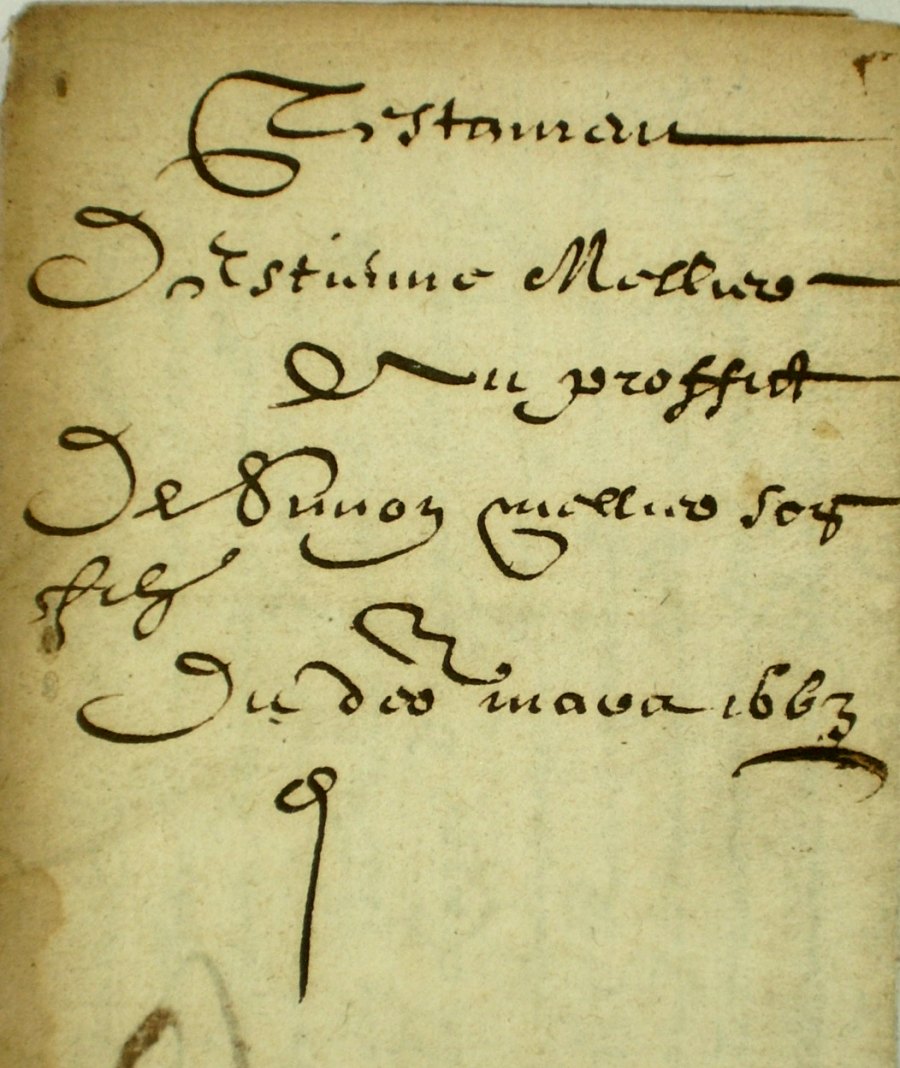 Testaman
D'Estienne Mellier
Au proffict
De Simon mellier son
filz
Du der mars 1663